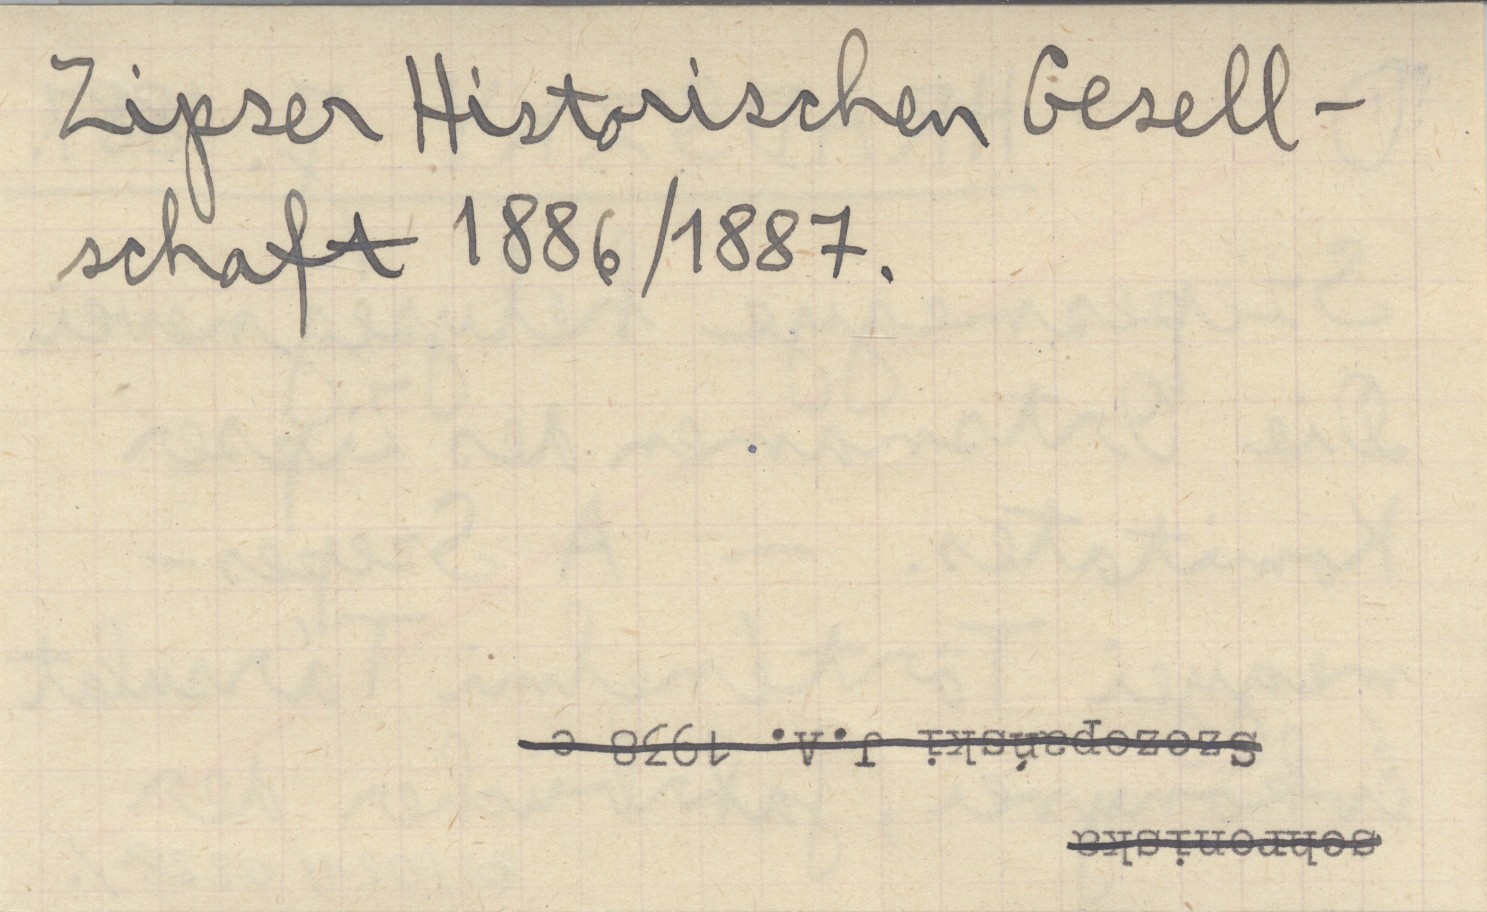 Zipser Historischen Gesell-
schaft 1886/1887.
Szczepański J.A. 1938 c
schroniska